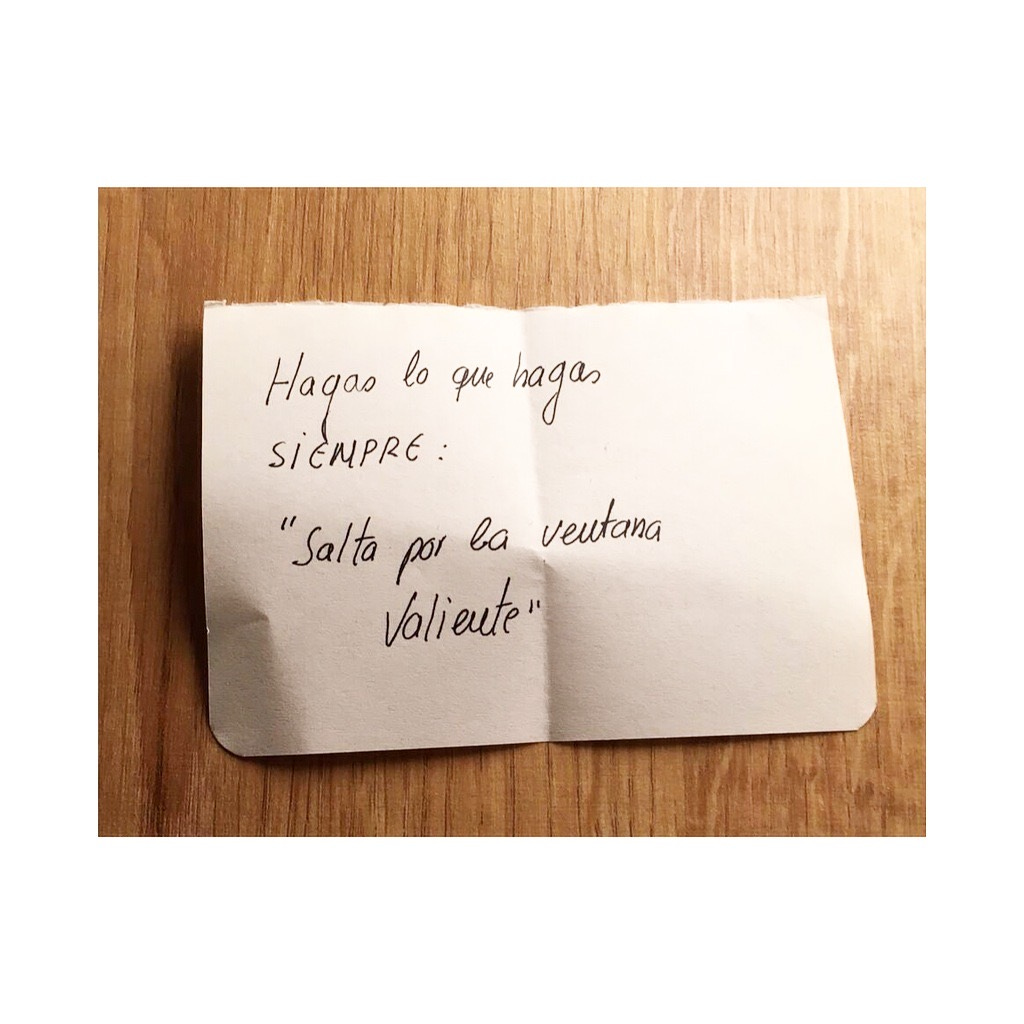 Hagas lo que hagas
SiEMPRE:
"Salta por la ventana
Valiente"